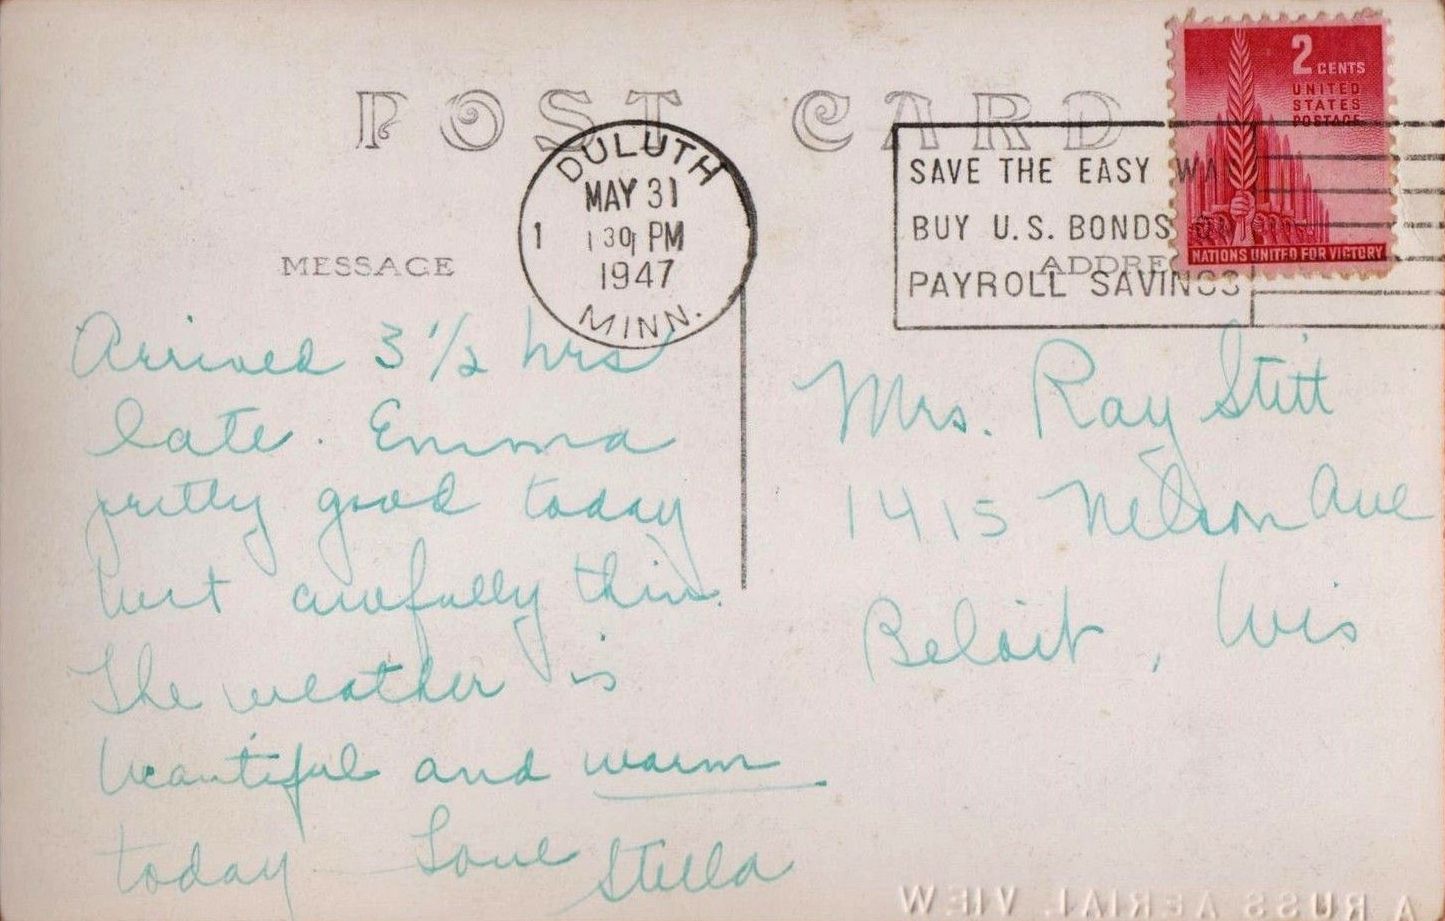 POST CARD
2 CENTS
UNITED
STATES
POSTAGE
NATIONS UNITED FOR VICTORY
DULUTH
MAY 31
1 1 30 PM
1947
MINN.
SAVE THE EASY WAY
BUY U.S. BONDS
PAYROLL SAVINGS
MESSAGE
ADDRESS
Arrived 3 1/2 hrs
late. Emma
pretty good today
but awefully thin.
The weather is
beautiful and warm
today Love Stella
Mrs. Ray Stitt
1415 Nelson Ave
Beloit, Wis
A RUSS AERIAL VIEW